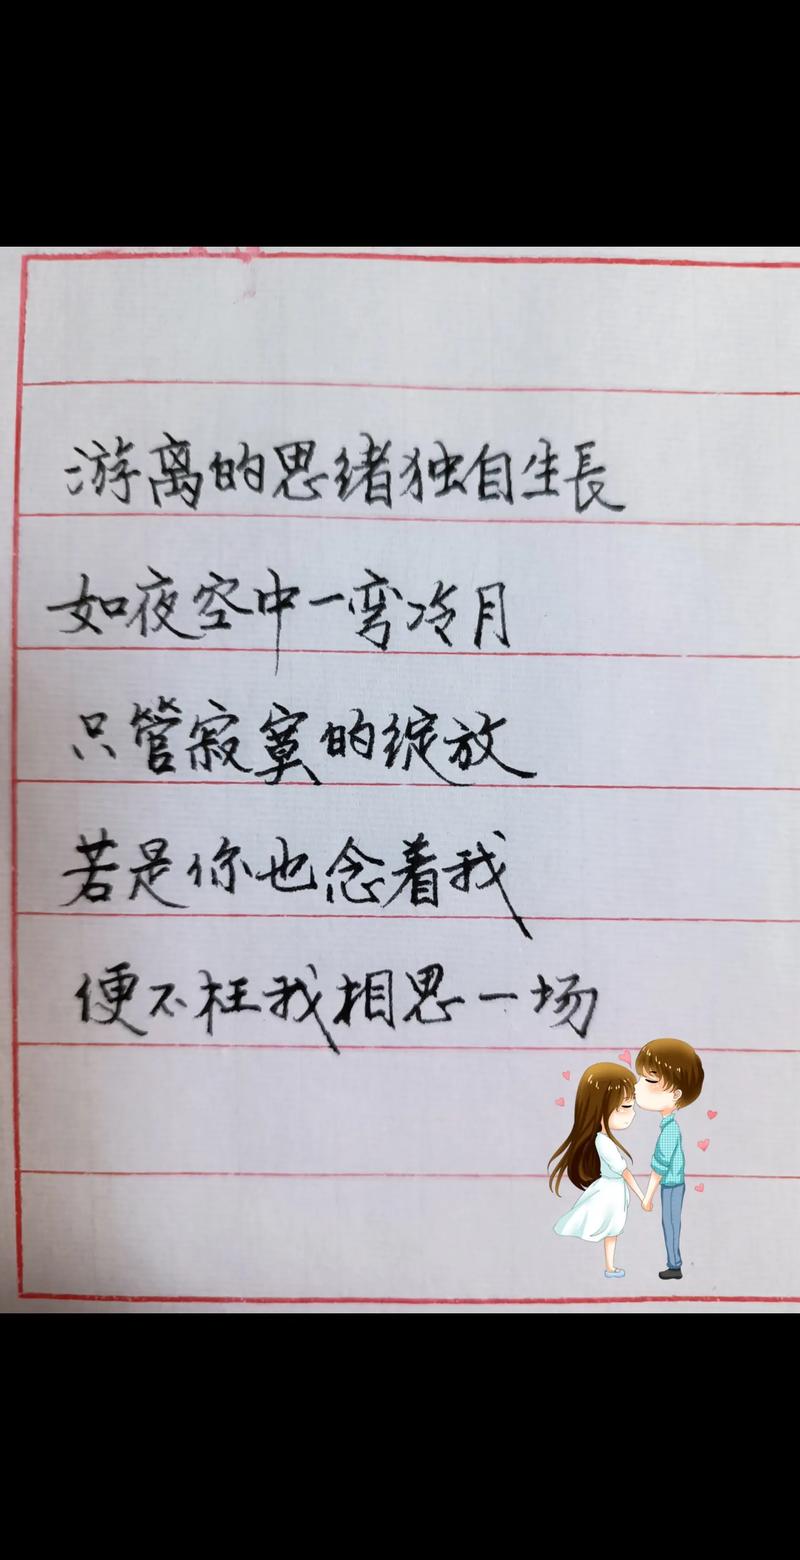 游离的思绪独自生長
如夜空中一弯冷月
只管寂寞的绽放
若是你也念着我
便不枉我相思一场